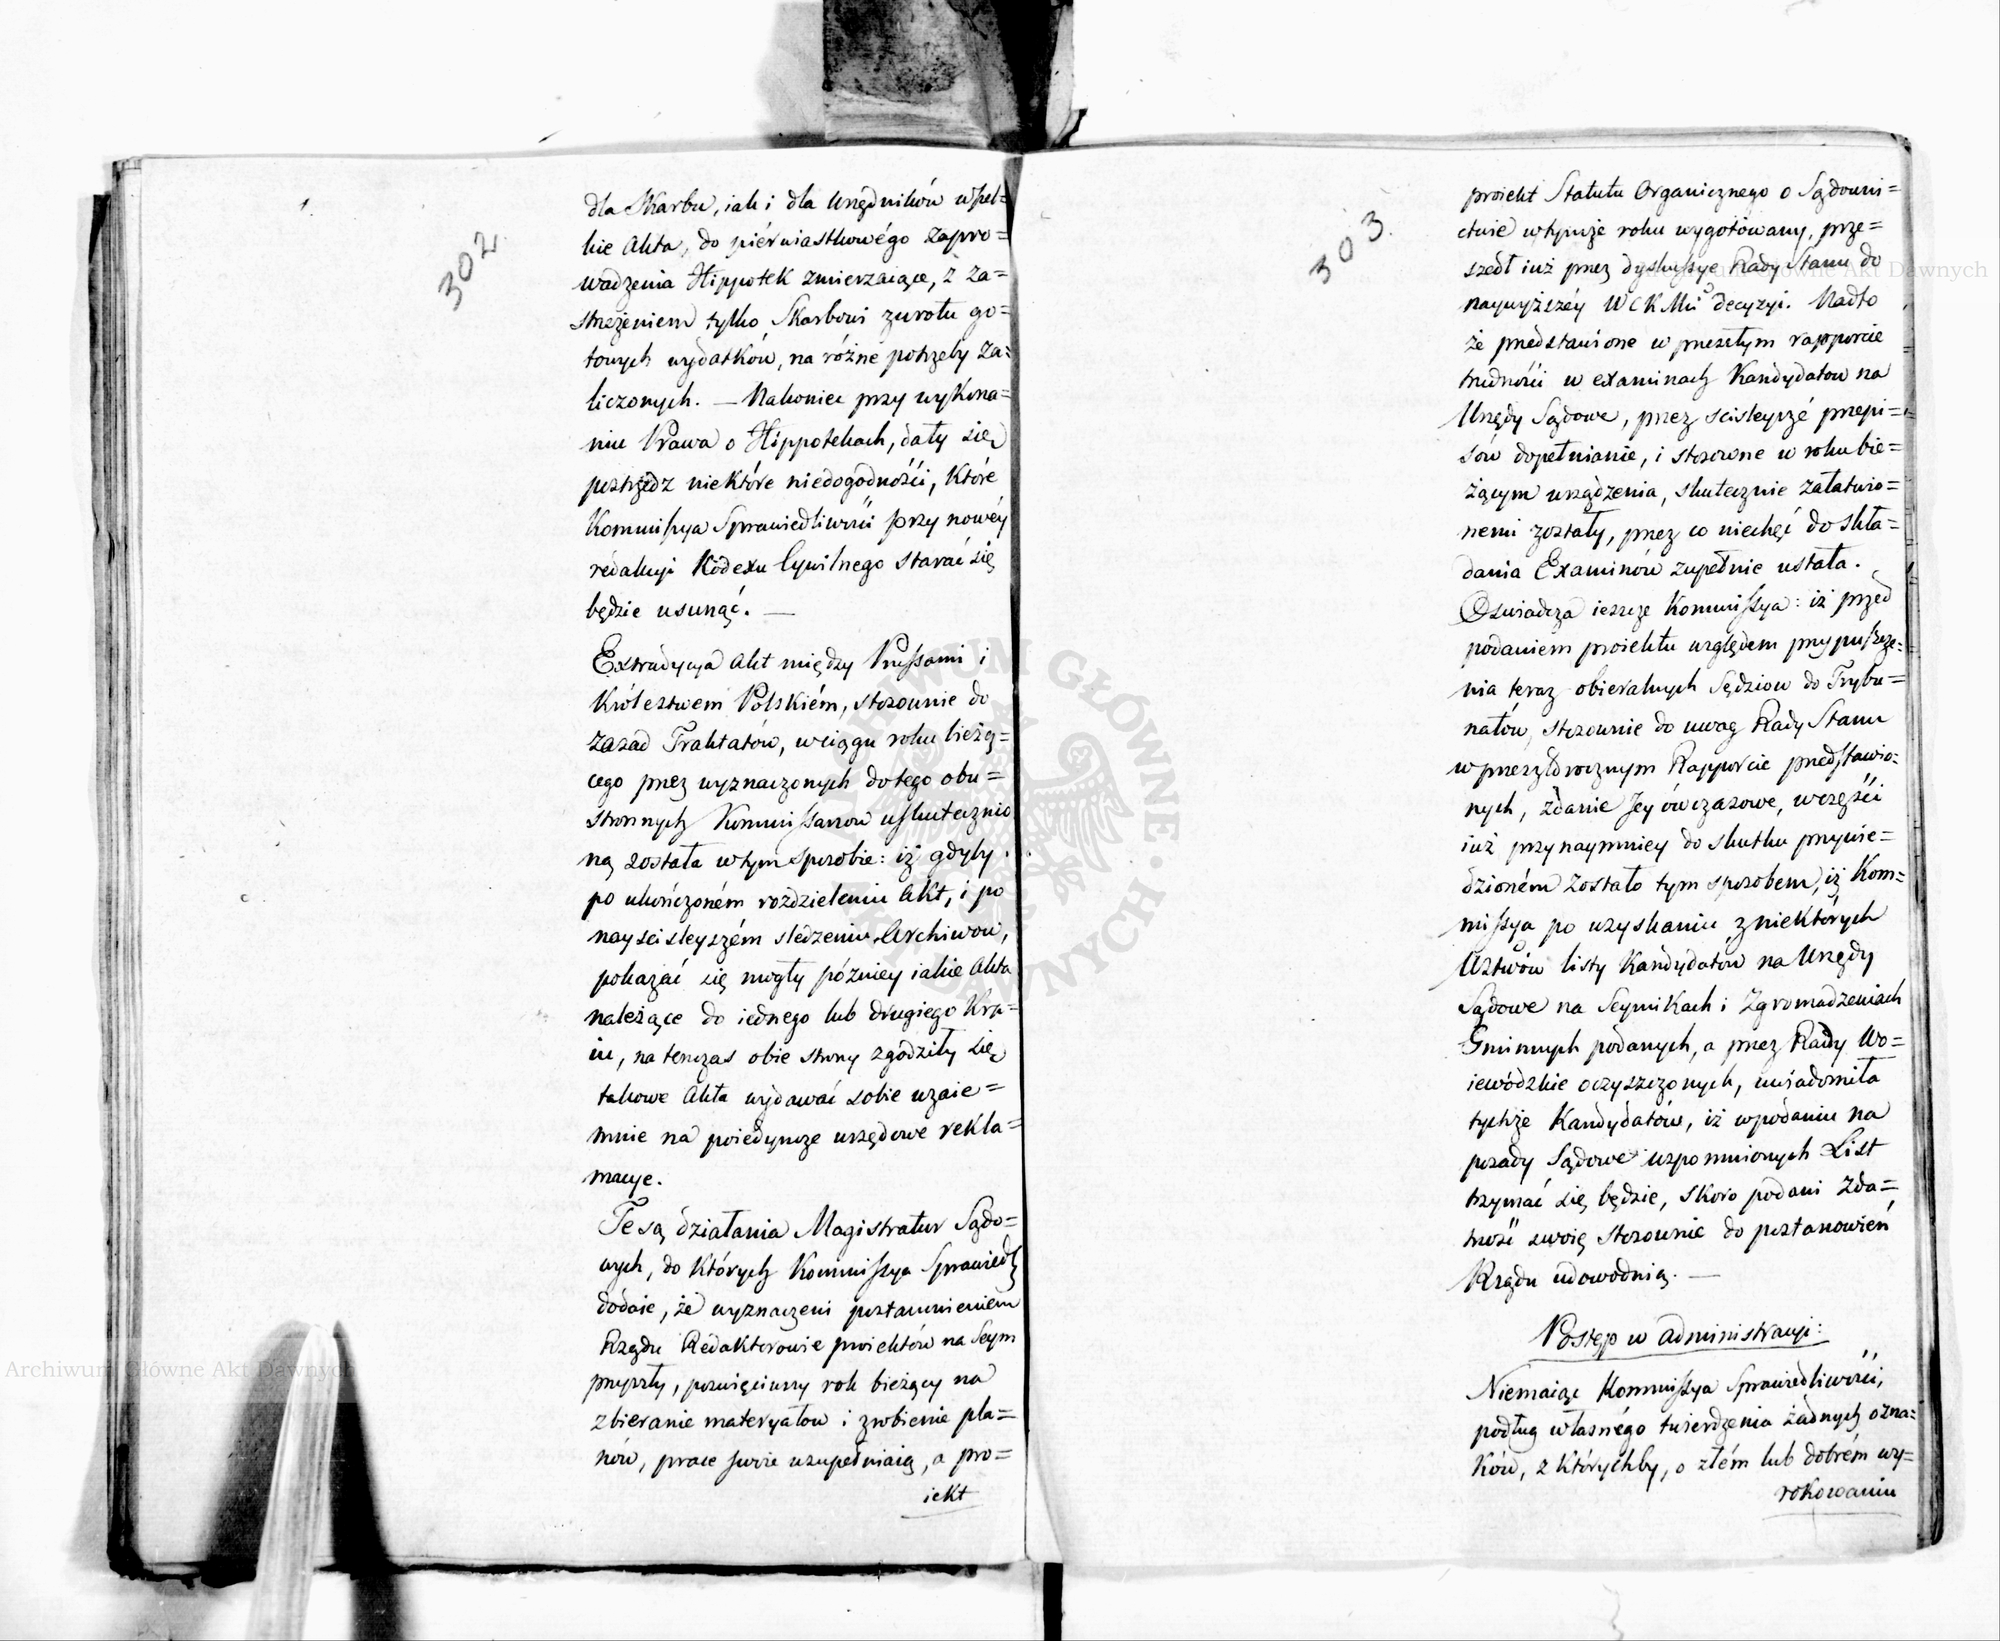 302.
dla Skarbu, iak i dla Urzędników wszel=
kie Akta, do piérwiastkowégo zapro=
wadzenia Hippotek zmierzaiące, z za=
strzeżeniem tylko Skarbowi zwrotu go=
towych wydatków, na różne potrzeby za=
liczonych. — Nakoniec przy wykona=
niu Prawa o Hippotekach, dały się
postrzedz niektóre niedogodnośći, które
Kommissya Sprawiedliwośći przy nowéy
rédakcyi Kodexu Cywilnego starać się
będzie usunąć. —
Extradycya Akt między Prussami i
Królestwem Polskiém, stosownie do
zasad Traktatów, w ciągu roku bieżą=
cego przez wyznaczonych do tego obu=
stronnych Kommissarzow uskutecznio
ną została w tym sposobie: iż gdyby
po ukończoném rozdzieleniu Akt, i po
nayscisleyszém sledzeniu Archiwow,
pokazać się mogły późniey iakie Akta
należące do iednego lub drugiego Kra=
iu, na tenczas obie strony zgodziły się
takowe Akta wydawać sobie wzaie=
mnie na poiedyncze urzędowe rekla=
macye.
Te są działania Magistratur Sądo=
wych, do których Kommissya Sprawiedl
dodaie, że wyznaczeni postanowieniem
Rządu Rédaktorowie proiektów na Seym
przyszły, poswięciwszy rok bieżący na
zbieranie materyałow i zrobienie pla=
nów, prace swoie uzupełniaią, a pro=
iekt
303.
proiekt Statutu Organicznego o Sądowni=
ctwie w tymże roku wygotowany, prze=
szedł iuż przez dyskussye Rady Stanu do
naywyższéy WCKMci decyzyi. Nadto
że przedstawione w przeszłym rapporcie
trudnośći w examinach Kandydatow na
Urzędy Sądowe, przez scisleyszé przepi=
sów dopełnianie, i stosowne w roku bie=
żącym urządzenia, skutecznie załatwio=
nemi zostały, przez co niechęć do skła=
dania Examinów zupełnie ustała.
Oswiadcza ieszcze Kommissya: iż przed
podaniem proiektu względem przypuszcze=
nia teraz obieralnych Sędziow do Trybu=
nałów, stosownie do uwag Rady Stanu
w przeszłorocznym Rapporcie przedstawio=
nych, zdanie Jey ówczasowe, w częśći
iuż przynaymniey do skutku przywie=
dzioném zostało tym sposobem, iż Kom=
missya po uzyskaniu z niektórych
Wztwów listy Kandydatów na Urzędy
Sądowe na Seymikach i Zgromadzeniach
Gminnych podanych, a przez Rady Wo=
iewódzkie oczyszczonych, uwiadomiła
tychże Kandydatów, iż w podaniu na
posady Sądowe wspomnionych List
trzymać się będzie, skoro podani zda=
tność swoię stosownie do postanowień
Rządu udowodnią. —
Postęp w administracyi:
Niemaiąc Kommissya Sprawiedliwośći,
podług własnégo twierdzenia żadnych ozna=
ków, z którychby, o złém lub dobrém wy=
rokowaniu